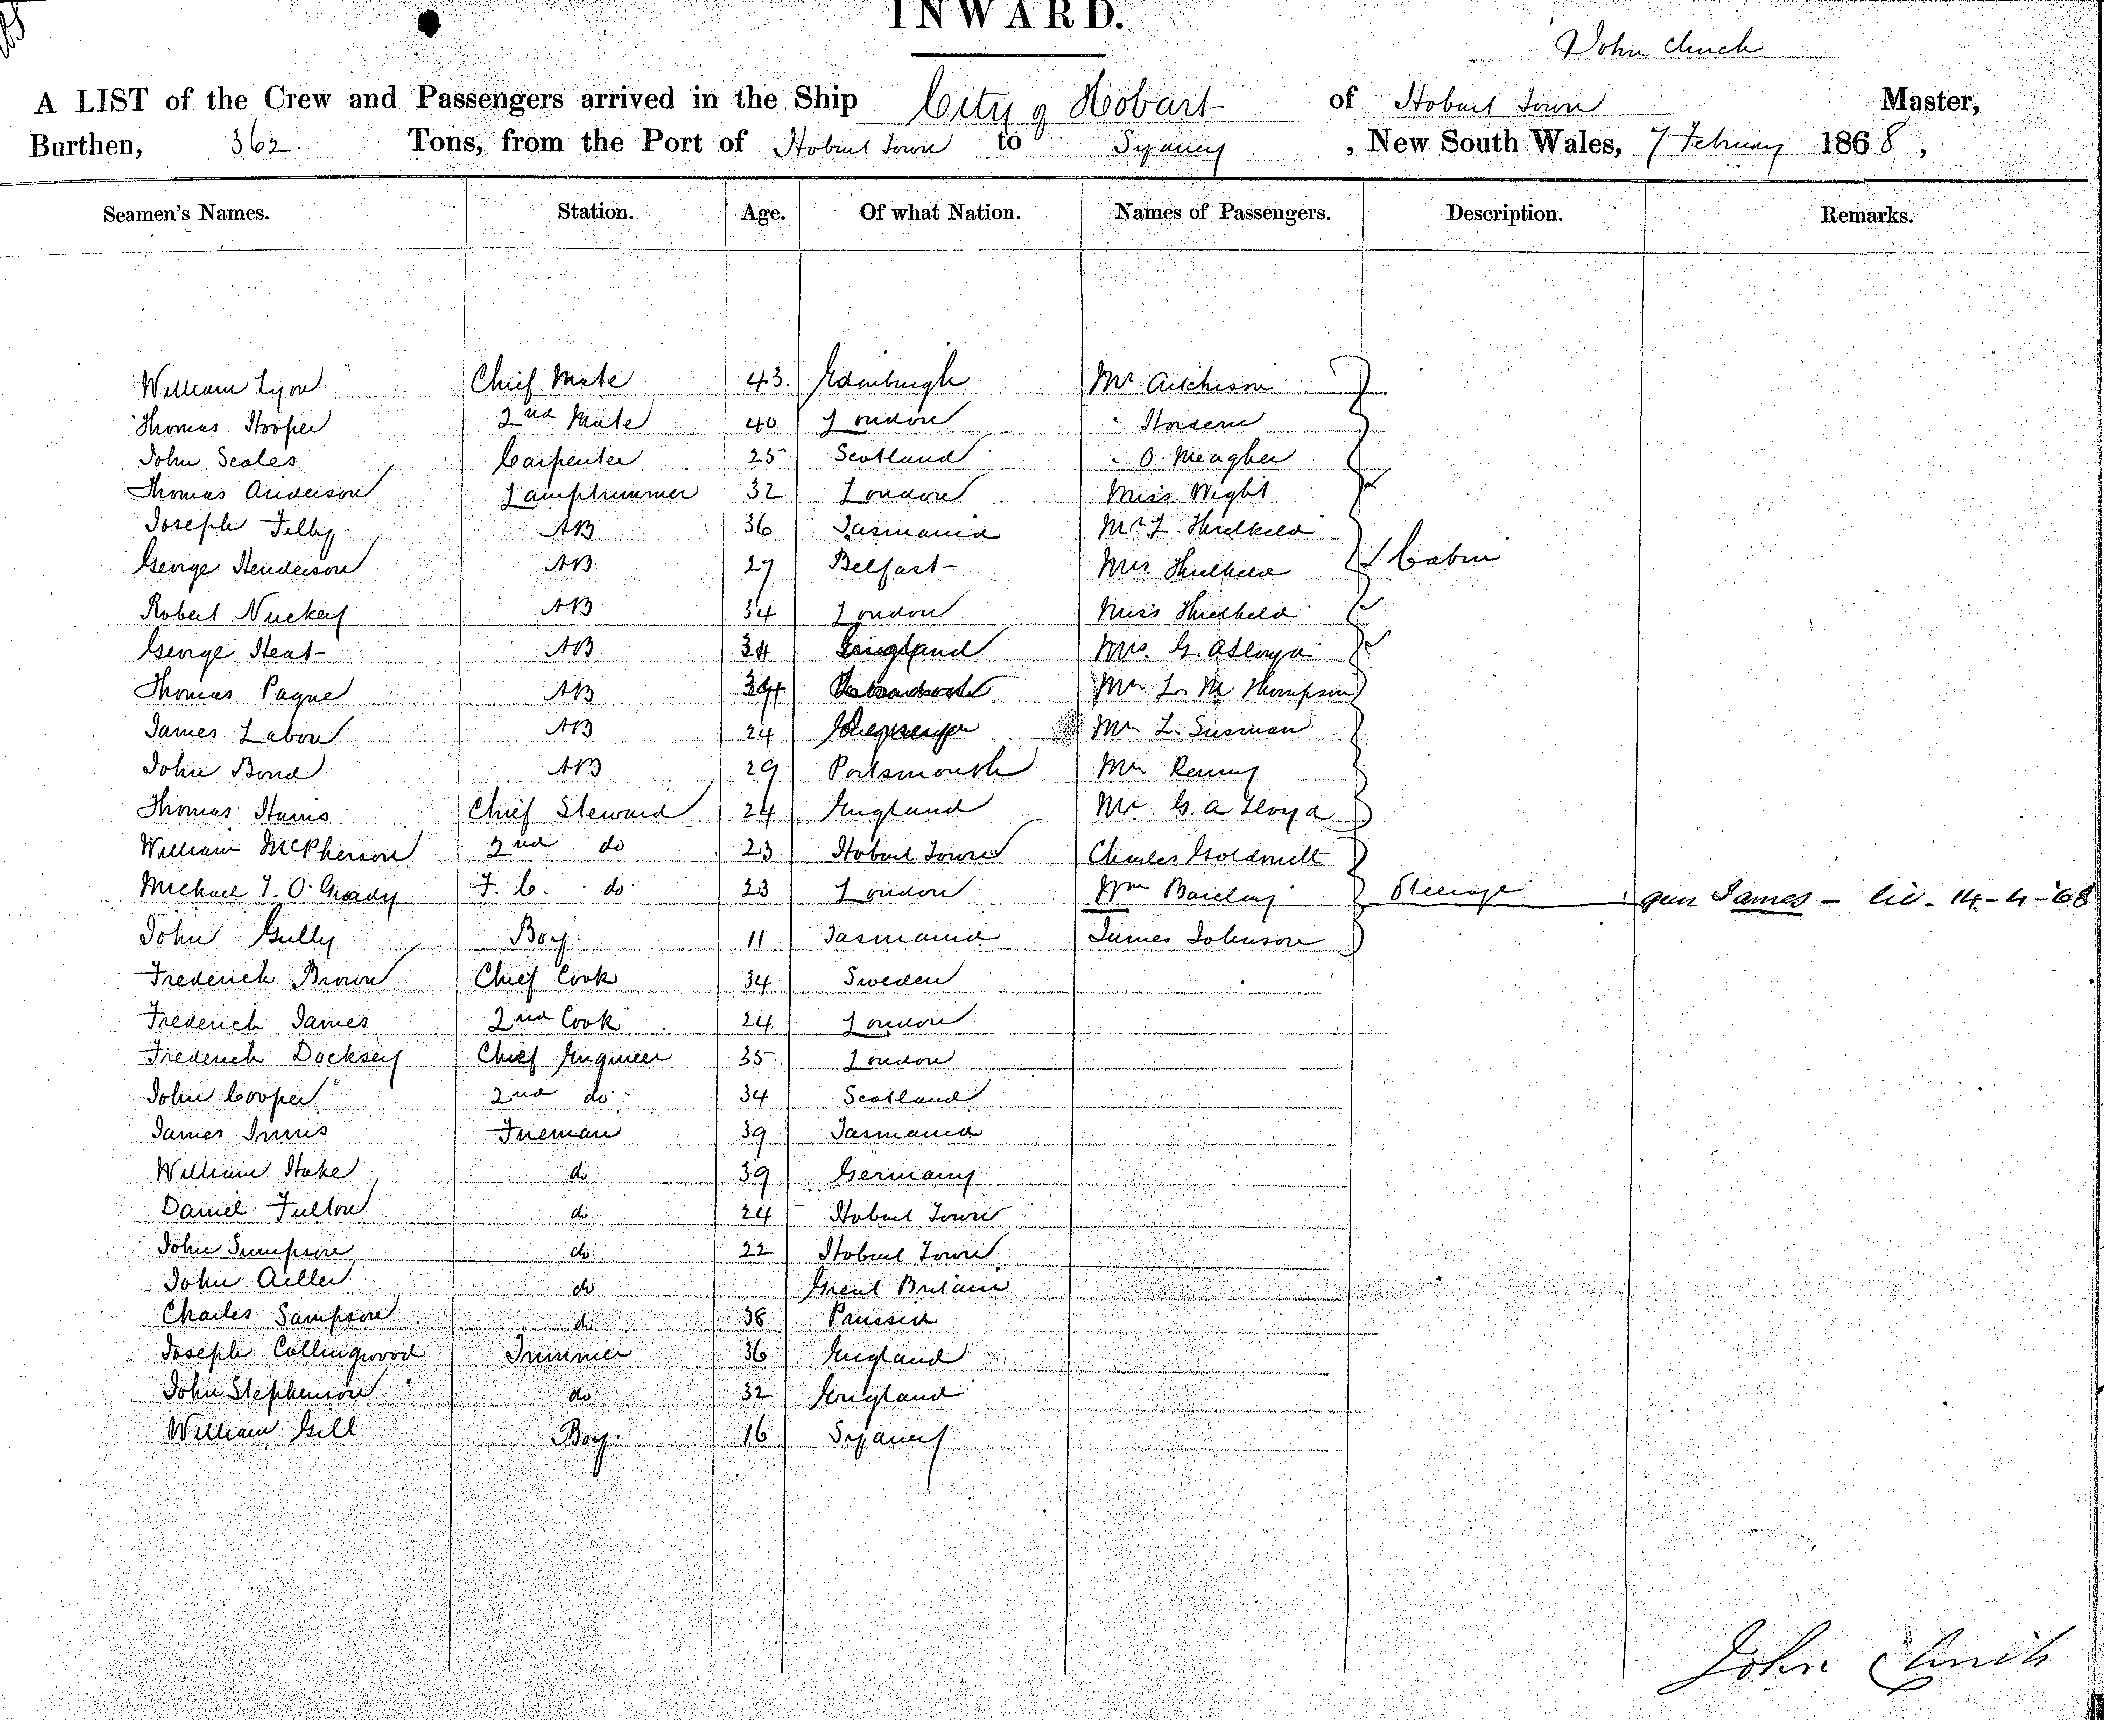 INWARD.
John Clinch
A LIST of the Crew and Passengers arrived in the Ship City of Hobart of Hobart Town Master,
Burthen, 362 Tons, from the Port of Hobart Town to Sydney, New South Wales, 7 February 1868,
Seamen's Names. Station. Age. Of what Nation. Names of Passengers. Description. Remarks.
William Lyon Chief Mate 43 Edinburgh Mr Aitchison
Thomas Hooper 2nd Mate 40 London "
John Scales Carpenter 25 Scotland " O. Meagher
Thomas Anderson Lamptrimmer 32 London Miss Wight
Joseph Filby AB 36 Tasmania Mr L. Threlkeld
George Henderson AB 27 Belfast Mrs Threlkeld Cabin
Robert Nuckey AB 34 London Miss Threlkeld
George Heat AB 34 England Mrs. G. A Lloyd
Thomas Payne AB Mr L. M Thompson
James Labon AB 24 Mr L. Susman
John Bond AB 29 Portsmouth Mr Renny
Thomas Harris Chief Steward 24 England Mr G. A Lloyd
William McPherson 2nd do 23 Hobart Town Charles
Michael J. O'Grady F. C. do 23 London Wm Barclay Steerage qun James - lic. 14-4-68
John Gully Boy 11 Tasmania James Johnson
Frederick Brown Chief Cook 34 Sweden
Frederick James 2nd Cook 24 London
Frederick Docksey Chief Engineer 35 London
John Cooper 2nd do 34 Scotland
James Innis Fireman 39 Tasmania
William Hake do 39 Germany
Daniel Fulton do 24 Hobart Town
John Simpson do 22 Hobart Town
John do Great Britain
Charles Sampson do 38 Prussia
Joseph Collingwood Trimmer 36 England
John Stephenson do 32 England
William Gill Boy 16 Sydney
John Clinch